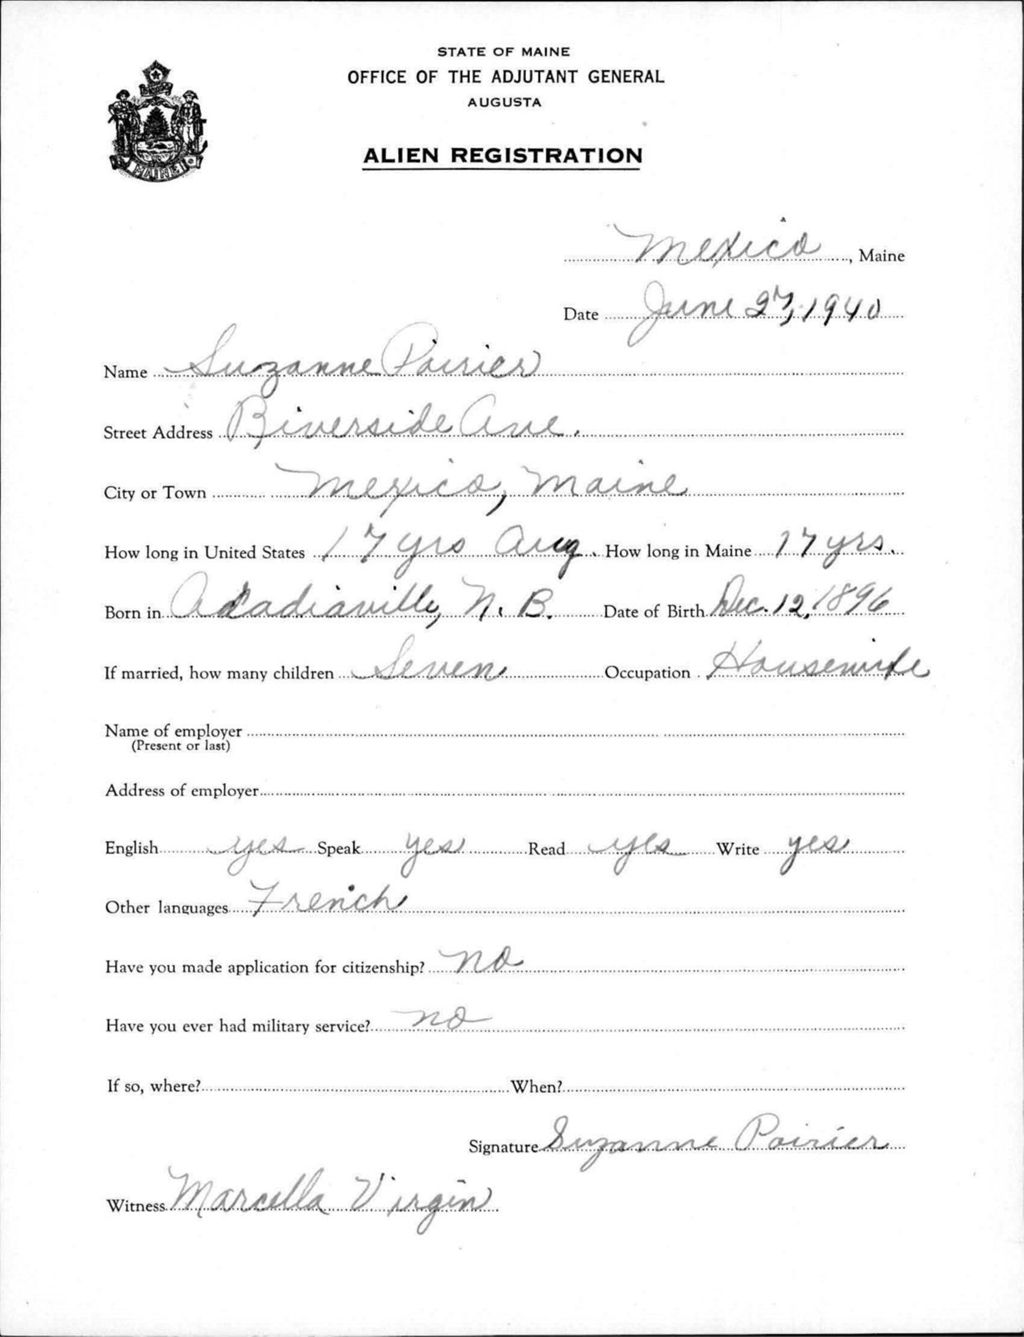 STATE OF MAINE
OFFICE OF THE ADJUTANT GENERAL
AUGUSTA
ALIEN REGISTRATION
Mexico, Maine
Date June 27, 1940
Name Suzanne Poirier
Street Address Riverside Ave.
City or Town Mexico, Maine
How long in United States 17 yrs Aug. How long in Maine 17 yrs.
Born in Acadiaville, N. B. Date of Birth Dec. 12, 1896
If married, how many children Seven Occupation Housewife
Name of employer
(Present or last)
Address of employer
English yes Speak yes Read yes Write yes
Other languages French
Have you made application for citizenship? no
Have you ever had military service? no
If so, where? When?
Signature Suzanne Poirier
Witness Marcella Virgin